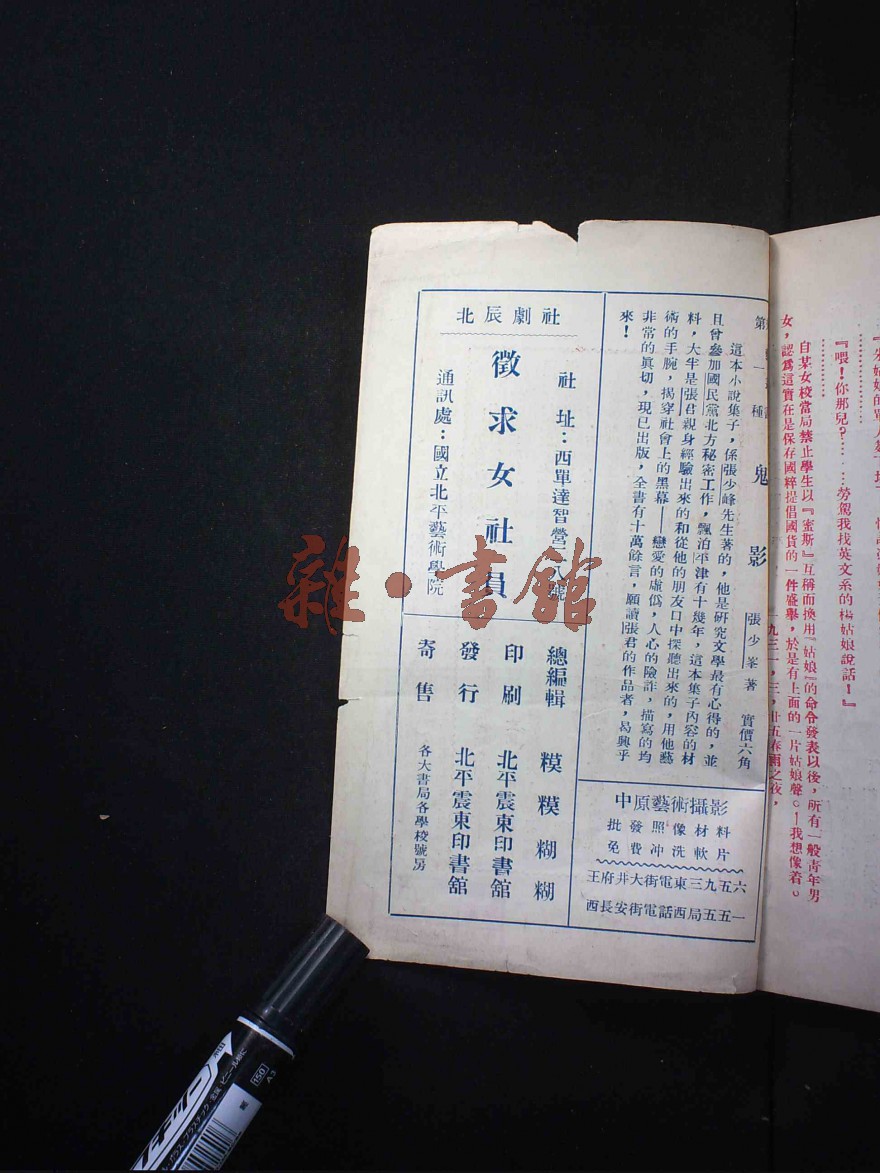 『喂！你那兒？……勞駕我找英文系的楊姑娘說話！』
…………
自某女校當局禁止學生以『蜜斯』互稱而換用『姑娘』的命令發表以後，所有一般青年男
女，認爲這實在是保存國粹提倡國貨的一件盛舉，於是有上面的一片姑娘聲。—我想像着。
一九三一，三，卅五春雨之夜，
鬼影
張少峯著 實價六角
這本小說集子，係張少峰先生著的，他是研究文學最有心得的，並
且曾參加國民黨北方秘密工作，飄泊平津有十幾年，這本集子內容的材
料，大半是張君親身經驗出來的和從他的朋友口中探聽出來的，用他藝
術的手腕，揭穿社會上的黑幕——戀愛的虛僞，人心的險詐，描寫的均
非常的眞切，現已出版，全書有十萬餘言，願讀張君的作品者，曷興乎
來！
中原藝術攝影
批發照像材料
免費冲洗軟片
王府井大街電東三九五六
西長安街電話西局五五一
北辰劇社
社址：西單達智營二八號
徵求女社員
通訊處：國立北平藝術學院
總編輯 糢糢糊糊
印刷 北平震東印書舘
發行 北平震東印書舘
寄售 各大書局各學校號房
雜·書館
150
A3